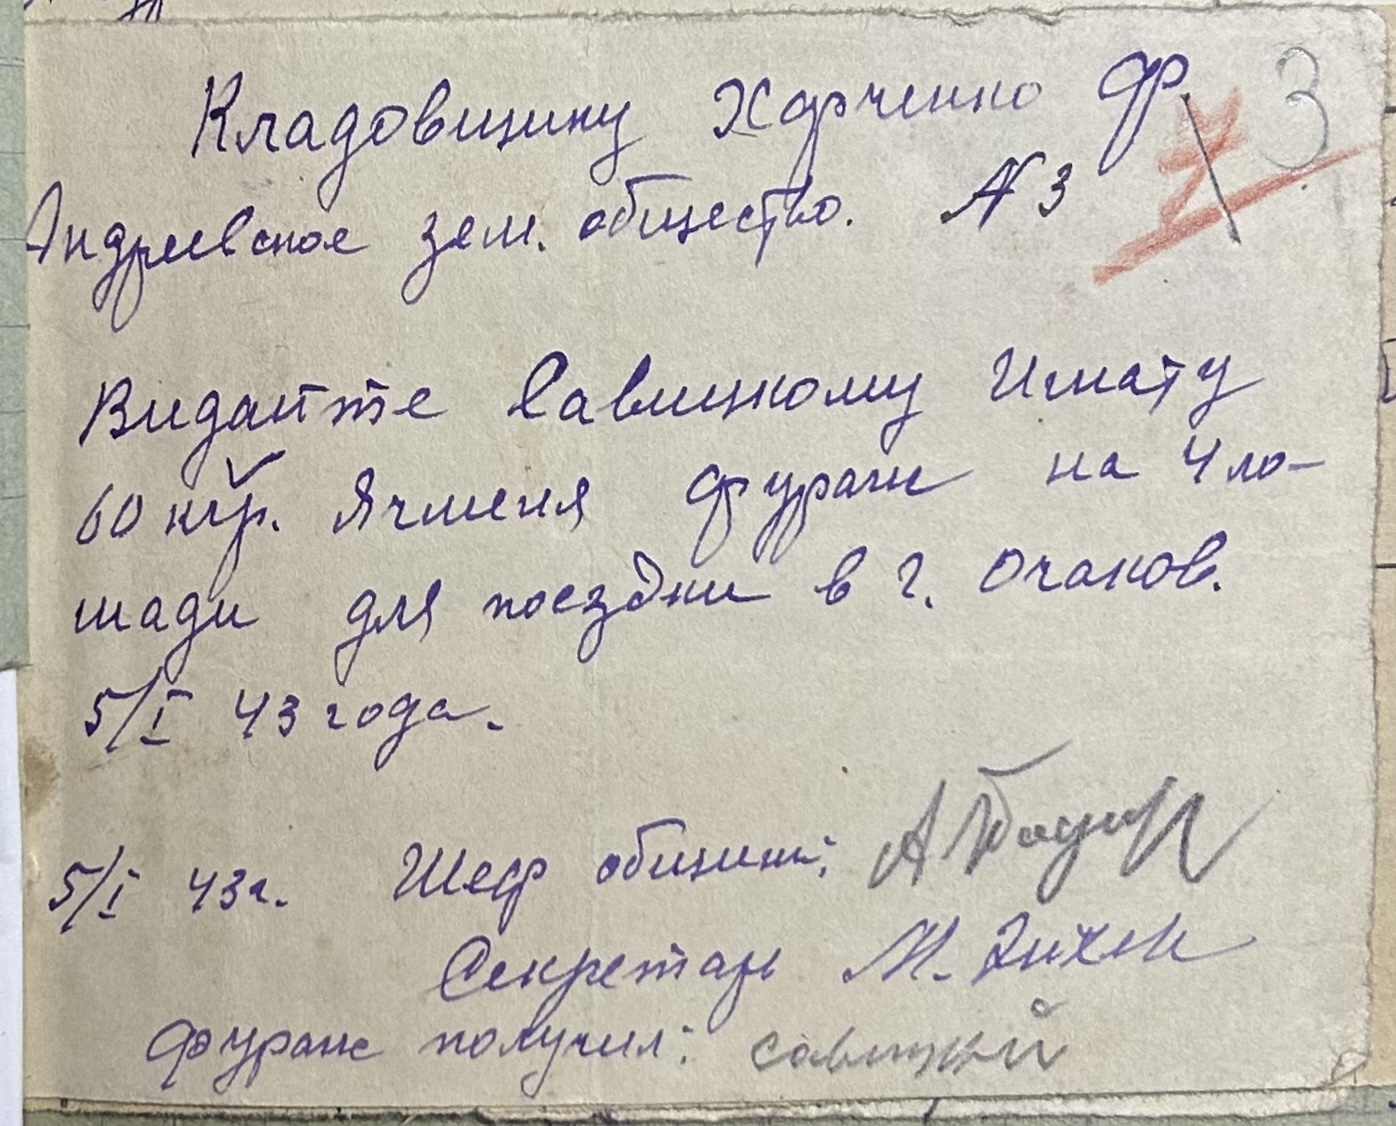 Кладовщику Харченко Ф. 3
Андреевское зем. общество. № 3
Видайте Савицкому Игнату
60 кгр. Ячменя фураж на 4 ло-
шади для поездки в г. Очаков.
5/I 43 года.
5/I 43г. Шеф общины: А
Секретарь М.
Фураж получил: Савицкий